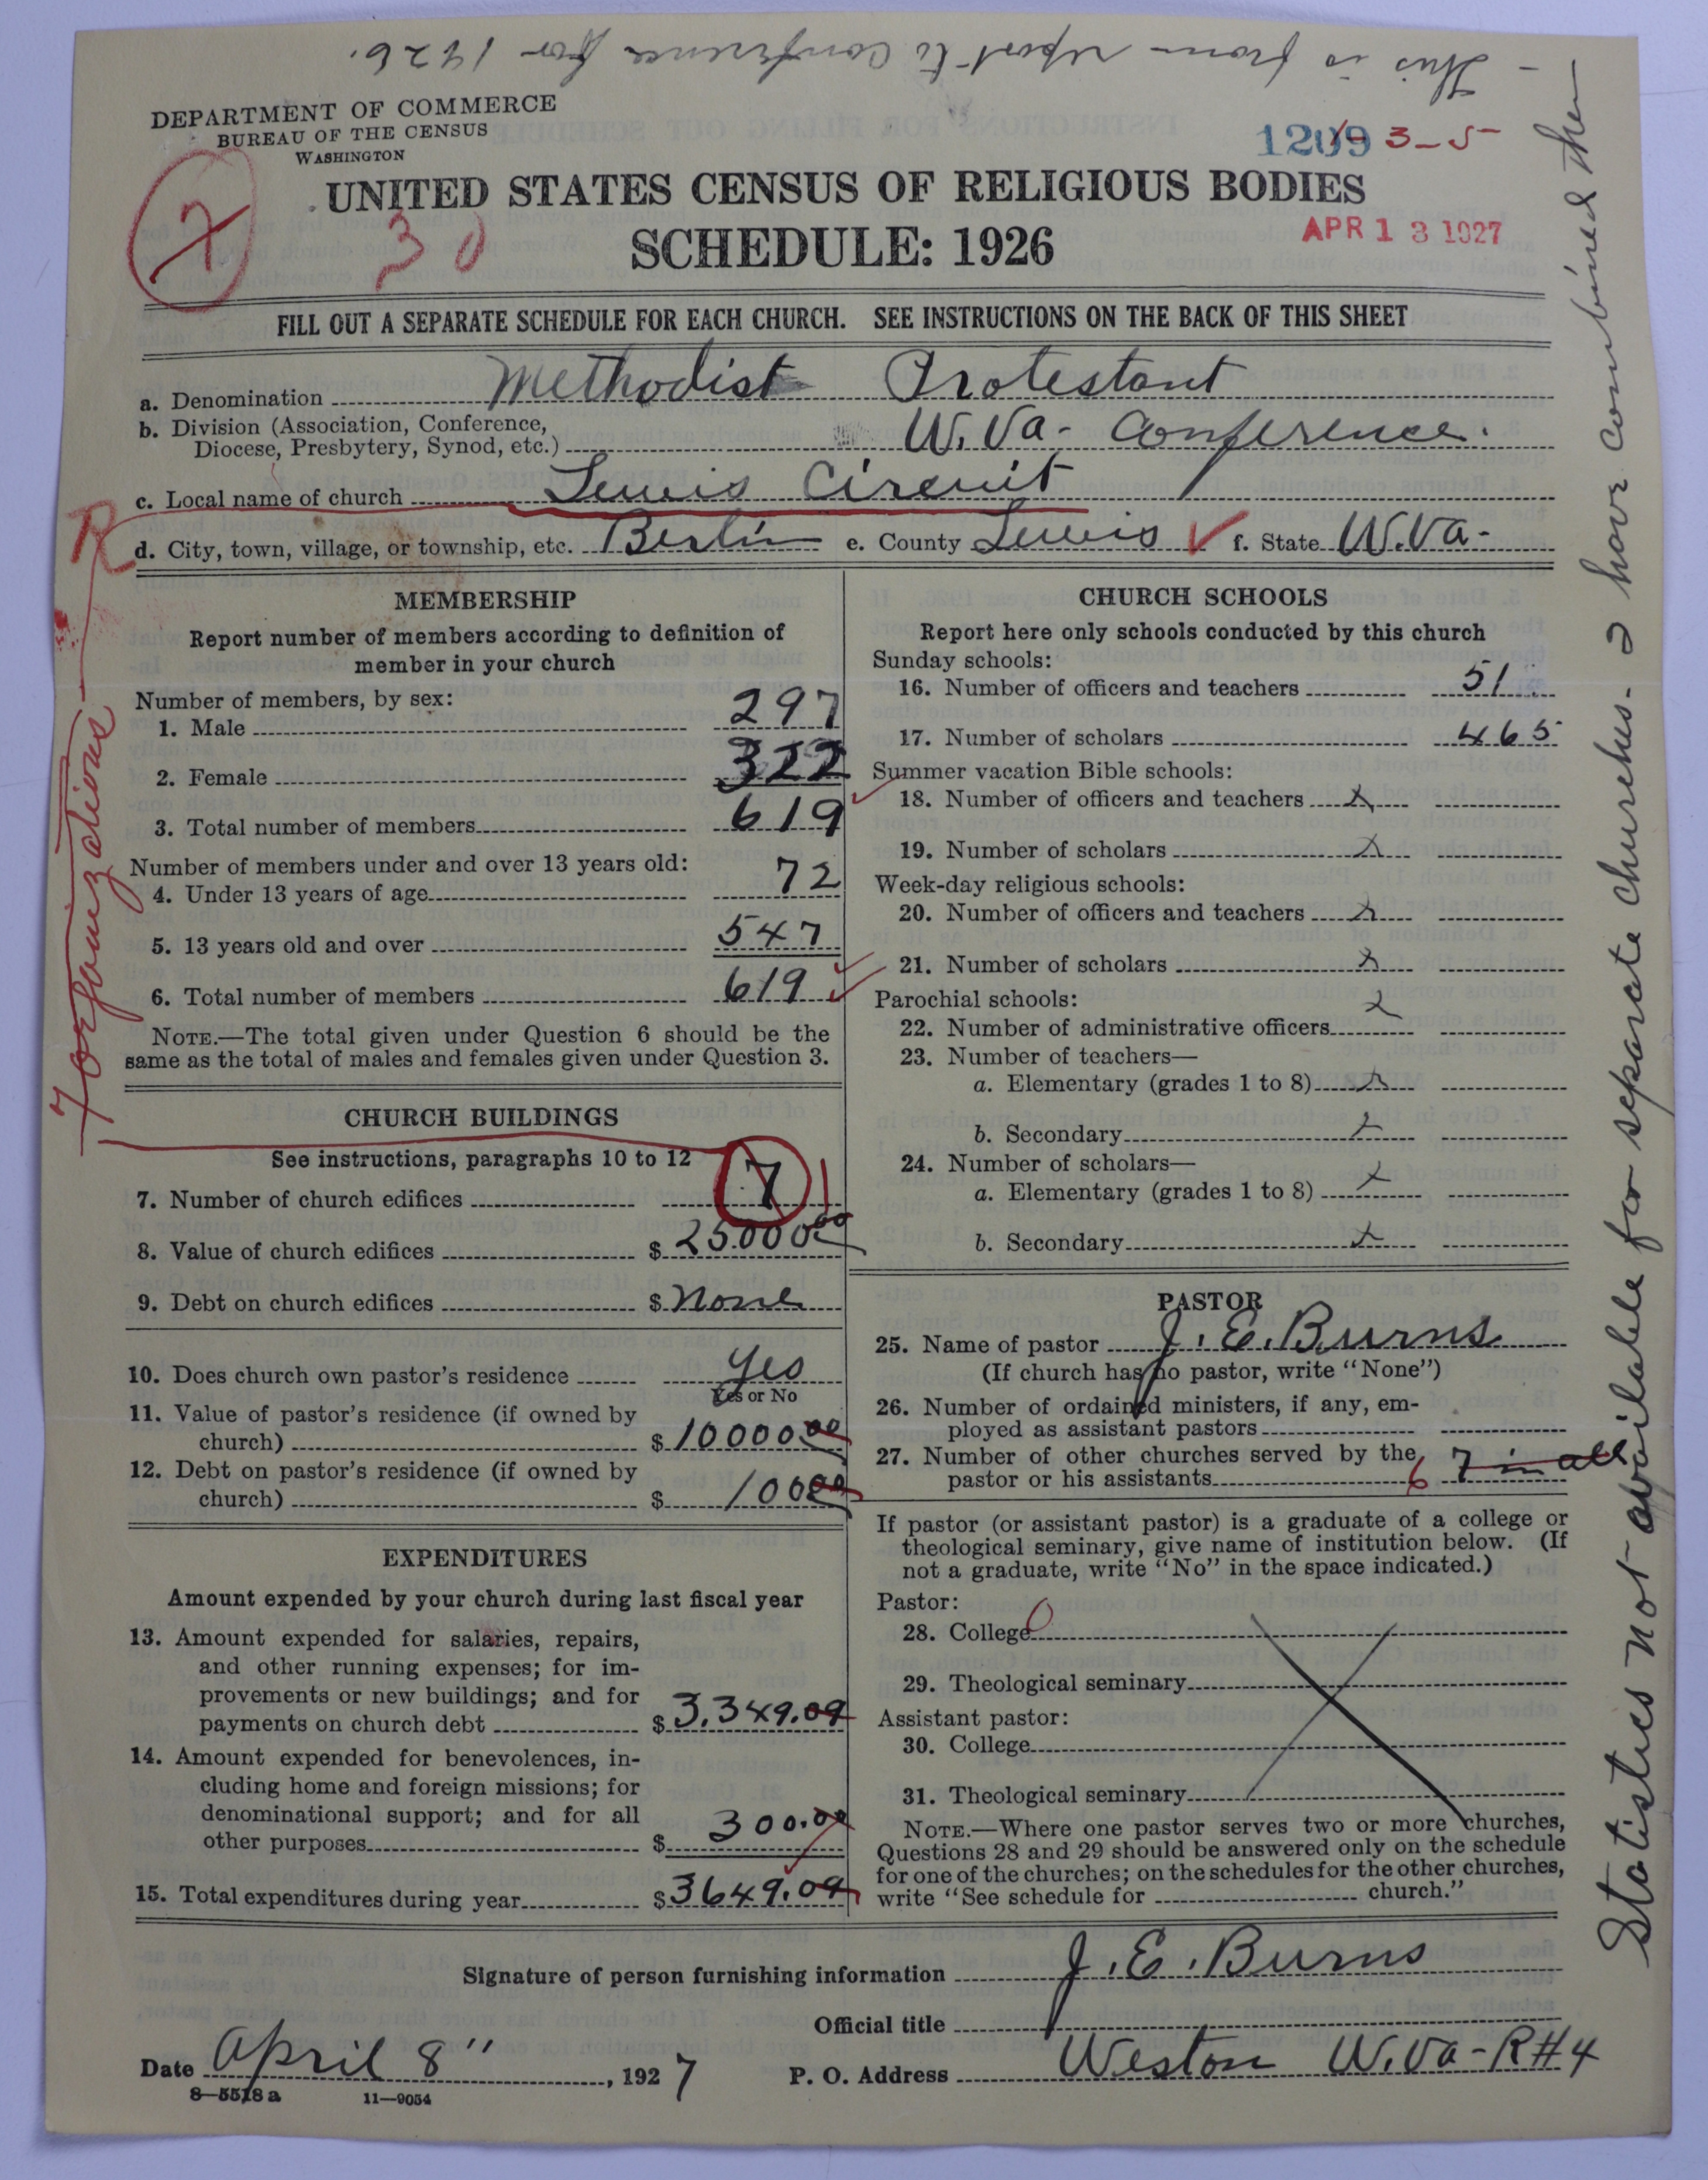 - This is from report to conference for 1926.
DEPARTMENT OF COMMERCE
BUREAU OF THE CENSUS
WASHINGTON
1209 3-5
UNITED STATES CENSUS OF RELIGIOUS BODIES
7
30
SCHEDULE: 1926
APR 13 1927
FILL OUT A SEPARATE SCHEDULE FOR EACH CHURCH. SEE INSTRUCTIONS ON THE BACK OF THIS SHEET
a. Denomination Methodist Protestant
b. Division (Association, Conference,
Diocese, Presbytery, Synod, etc.) W.Va- Conference.
c. Local name of church Lewis Circuit
d. City, town, village, or township, etc. Berlin e. County Lewis f. State W.Va-
R
7 organizations
MEMBERSHIP
Report number of members according to definition of
member in your church
Number of members, by sex:
1. Male 297
2. Female 322
3. Total number of members 619
Number of members under and over 13 years old:
4. Under 13 years of age 72
5. 13 years old and over 547
6. Total number of members 619
NOTE.—The total given under Question 6 should be the
same as the total of males and females given under Question 3.
CHURCH BUILDINGS
See instructions, paragraphs 10 to 12
7. Number of church edifices 7 1
8. Value of church edifices $ 25.000.00
9. Debt on church edifices $ None
10. Does church own pastor's residence Yes
Yes or No
11. Value of pastor's residence (if owned by
church) $ 10000.00
12. Debt on pastor's residence (if owned by
church) $ 100.00
EXPENDITURES
Amount expended by your church during last fiscal year
13. Amount expended for salaries, repairs,
and other running expenses; for im-
provements or new buildings; and for
payments on church debt $ 3,349.09
14. Amount expended for benevolences, in-
cluding home and foreign missions; for
denominational support; and for all
other purposes $ 300.00
15. Total expenditures during year $ 3649.09
CHURCH SCHOOLS
Report here only schools conducted by this church
Sunday schools:
16. Number of officers and teachers 51
17. Number of scholars 465
Summer vacation Bible schools:
18. Number of officers and teachers x
19. Number of scholars x
Week-day religious schools:
20. Number of officers and teachers x
21. Number of scholars x
Parochial schools:
22. Number of administrative officers x
23. Number of teachers—
a. Elementary (grades 1 to 8) x
b. Secondary x
24. Number of scholars—
a. Elementary (grades 1 to 8) x
b. Secondary x
PASTOR
25. Name of pastor J. E. Burns
(If church has no pastor, write "None")
26. Number of ordained ministers, if any, em-
ployed as assistant pastors
27. Number of other churches served by the
pastor or his assistants 6 7 in all
If pastor (or assistant pastor) is a graduate of a college or
theological seminary, give name of institution below. (If
not a graduate, write "No" in the space indicated.)
Pastor:
28. College 0
29. Theological seminary
Assistant pastor:
30. College
31. Theological seminary
NOTE.—Where one pastor serves two or more churches,
Questions 28 and 29 should be answered only on the schedule
for one of the churches; on the schedules for the other churches,
write "See schedule for church."
Signature of person furnishing information J. E. Burns
Official title
Date April 8" , 1927 P. O. Address Weston W.Va-R#4
8-5518 a 11-9054
Statistics not available for separate churches. I have combined them